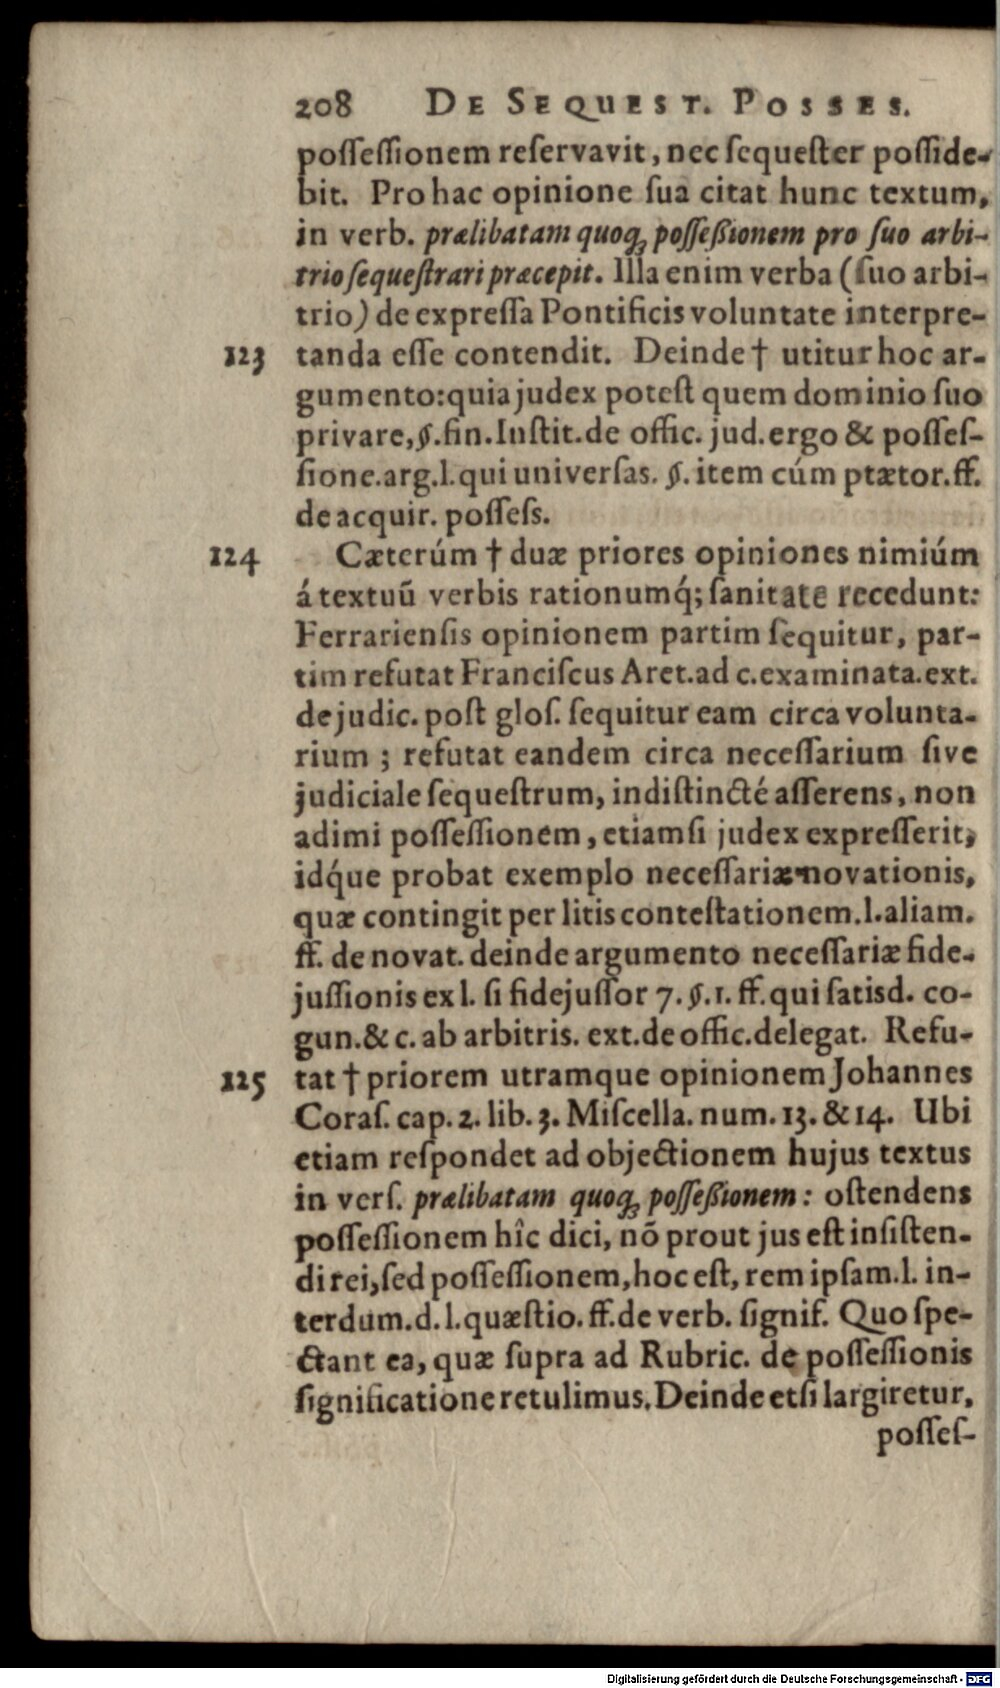 208 DE SEQUEST. POSSES.
poſſeſſionem reſervavit, nec ſequeſter poſſide-
bit. Pro hac opinione ſua citat hunc textum,
in verb. prælibatam quoq; poſſeßionem pro ſuo arbi-
trio ſequeſtrari præcepit. Illa enim verba (ſuo arbi-
trio) de expreſſa Pontificis voluntate interpre-
123 tanda eſſe contendit. Deinde † utitur hoc ar-
gumento: quia judex poteſt quem dominio ſuo
privare, §. fin. Inſtit. de offic. jud. ergo & poſſeſ-
ſione. arg. l. qui univerſas. §. item cúm ptætor. ff.
de acquir. poſſeſs.
124 Cæterúm † duæ priores opiniones nimiúm
á textuũ verbis rationumq́; ſanitate recedunt:
Ferrarienſis opinionem partim ſequitur, par-
tim refutat Franciſcus Aret. ad c. examinata. ext.
de judic. poſt gloſ. ſequitur eam circa volunta-
rium ; refutat eandem circa neceſſarium ſive
judiciale ſequeſtrum, indiſtincté aſſerens, non
adimi poſſeſſionem, etiamſi judex expreſſerit,
idq́ue probat exemplo neceſſariæ novationis,
quæ contingit per litis conteſtationem. l. aliam.
ff. de novat. deinde argumento neceſſariæ fide-
juſſionis ex l. ſi fidejuſſor 7. §. 1. ff. qui ſatisd. co-
gun. & c. ab arbitris. ext. de offic. delegat. Refu-
125 tat † priorem utramque opinionem Johannes
Coraſ. cap. 2. lib. 3. Miſcella. num. 13. & 14. Ubi
etiam reſpondet ad objectionem hujus textus
in verſ. prælibatam quoq; poſſeßionem: oſtendens
poſſeſſionem hîc dici, nõ prout jus eſt inſiſten-
di rei, ſed poſſeſſionem, hoc eſt, rem ipſam. l. in-
terdum. d. l. quæſtio. ff. de verb. ſignif. Quo ſpe-
ctant ea, quæ ſupra ad Rubric. de poſſeſſionis
ſignificatione retulimus. Deinde etſi largiretur,
poſſeſ-
Digitalisierung gefördert durch die Deutsche Forschungsgemeinschaft - DFG